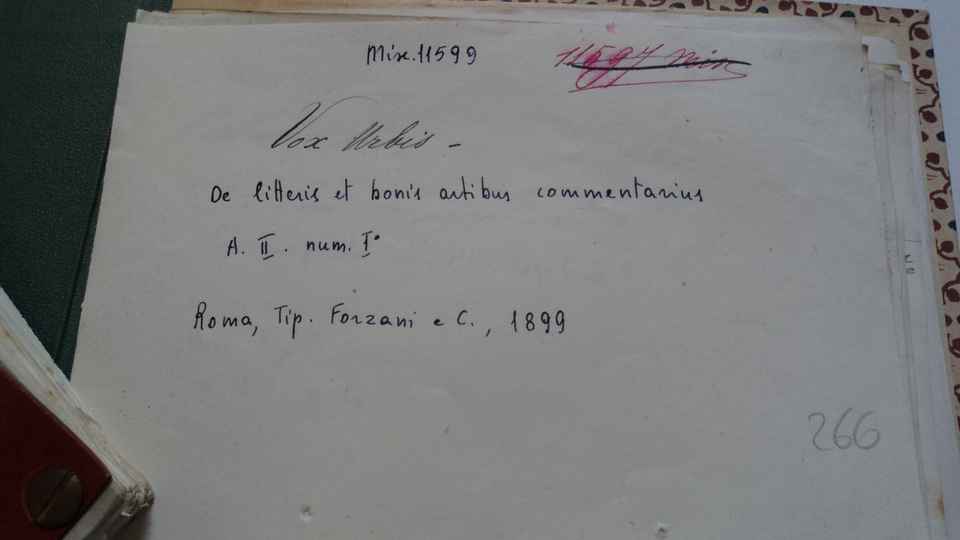 Misc. 11599
11597 Misc
Vox Urbis -
De litteris et bonis artibus commentarius
A. II. num. I°
Roma, Tip. Forzani e C., 1899
266